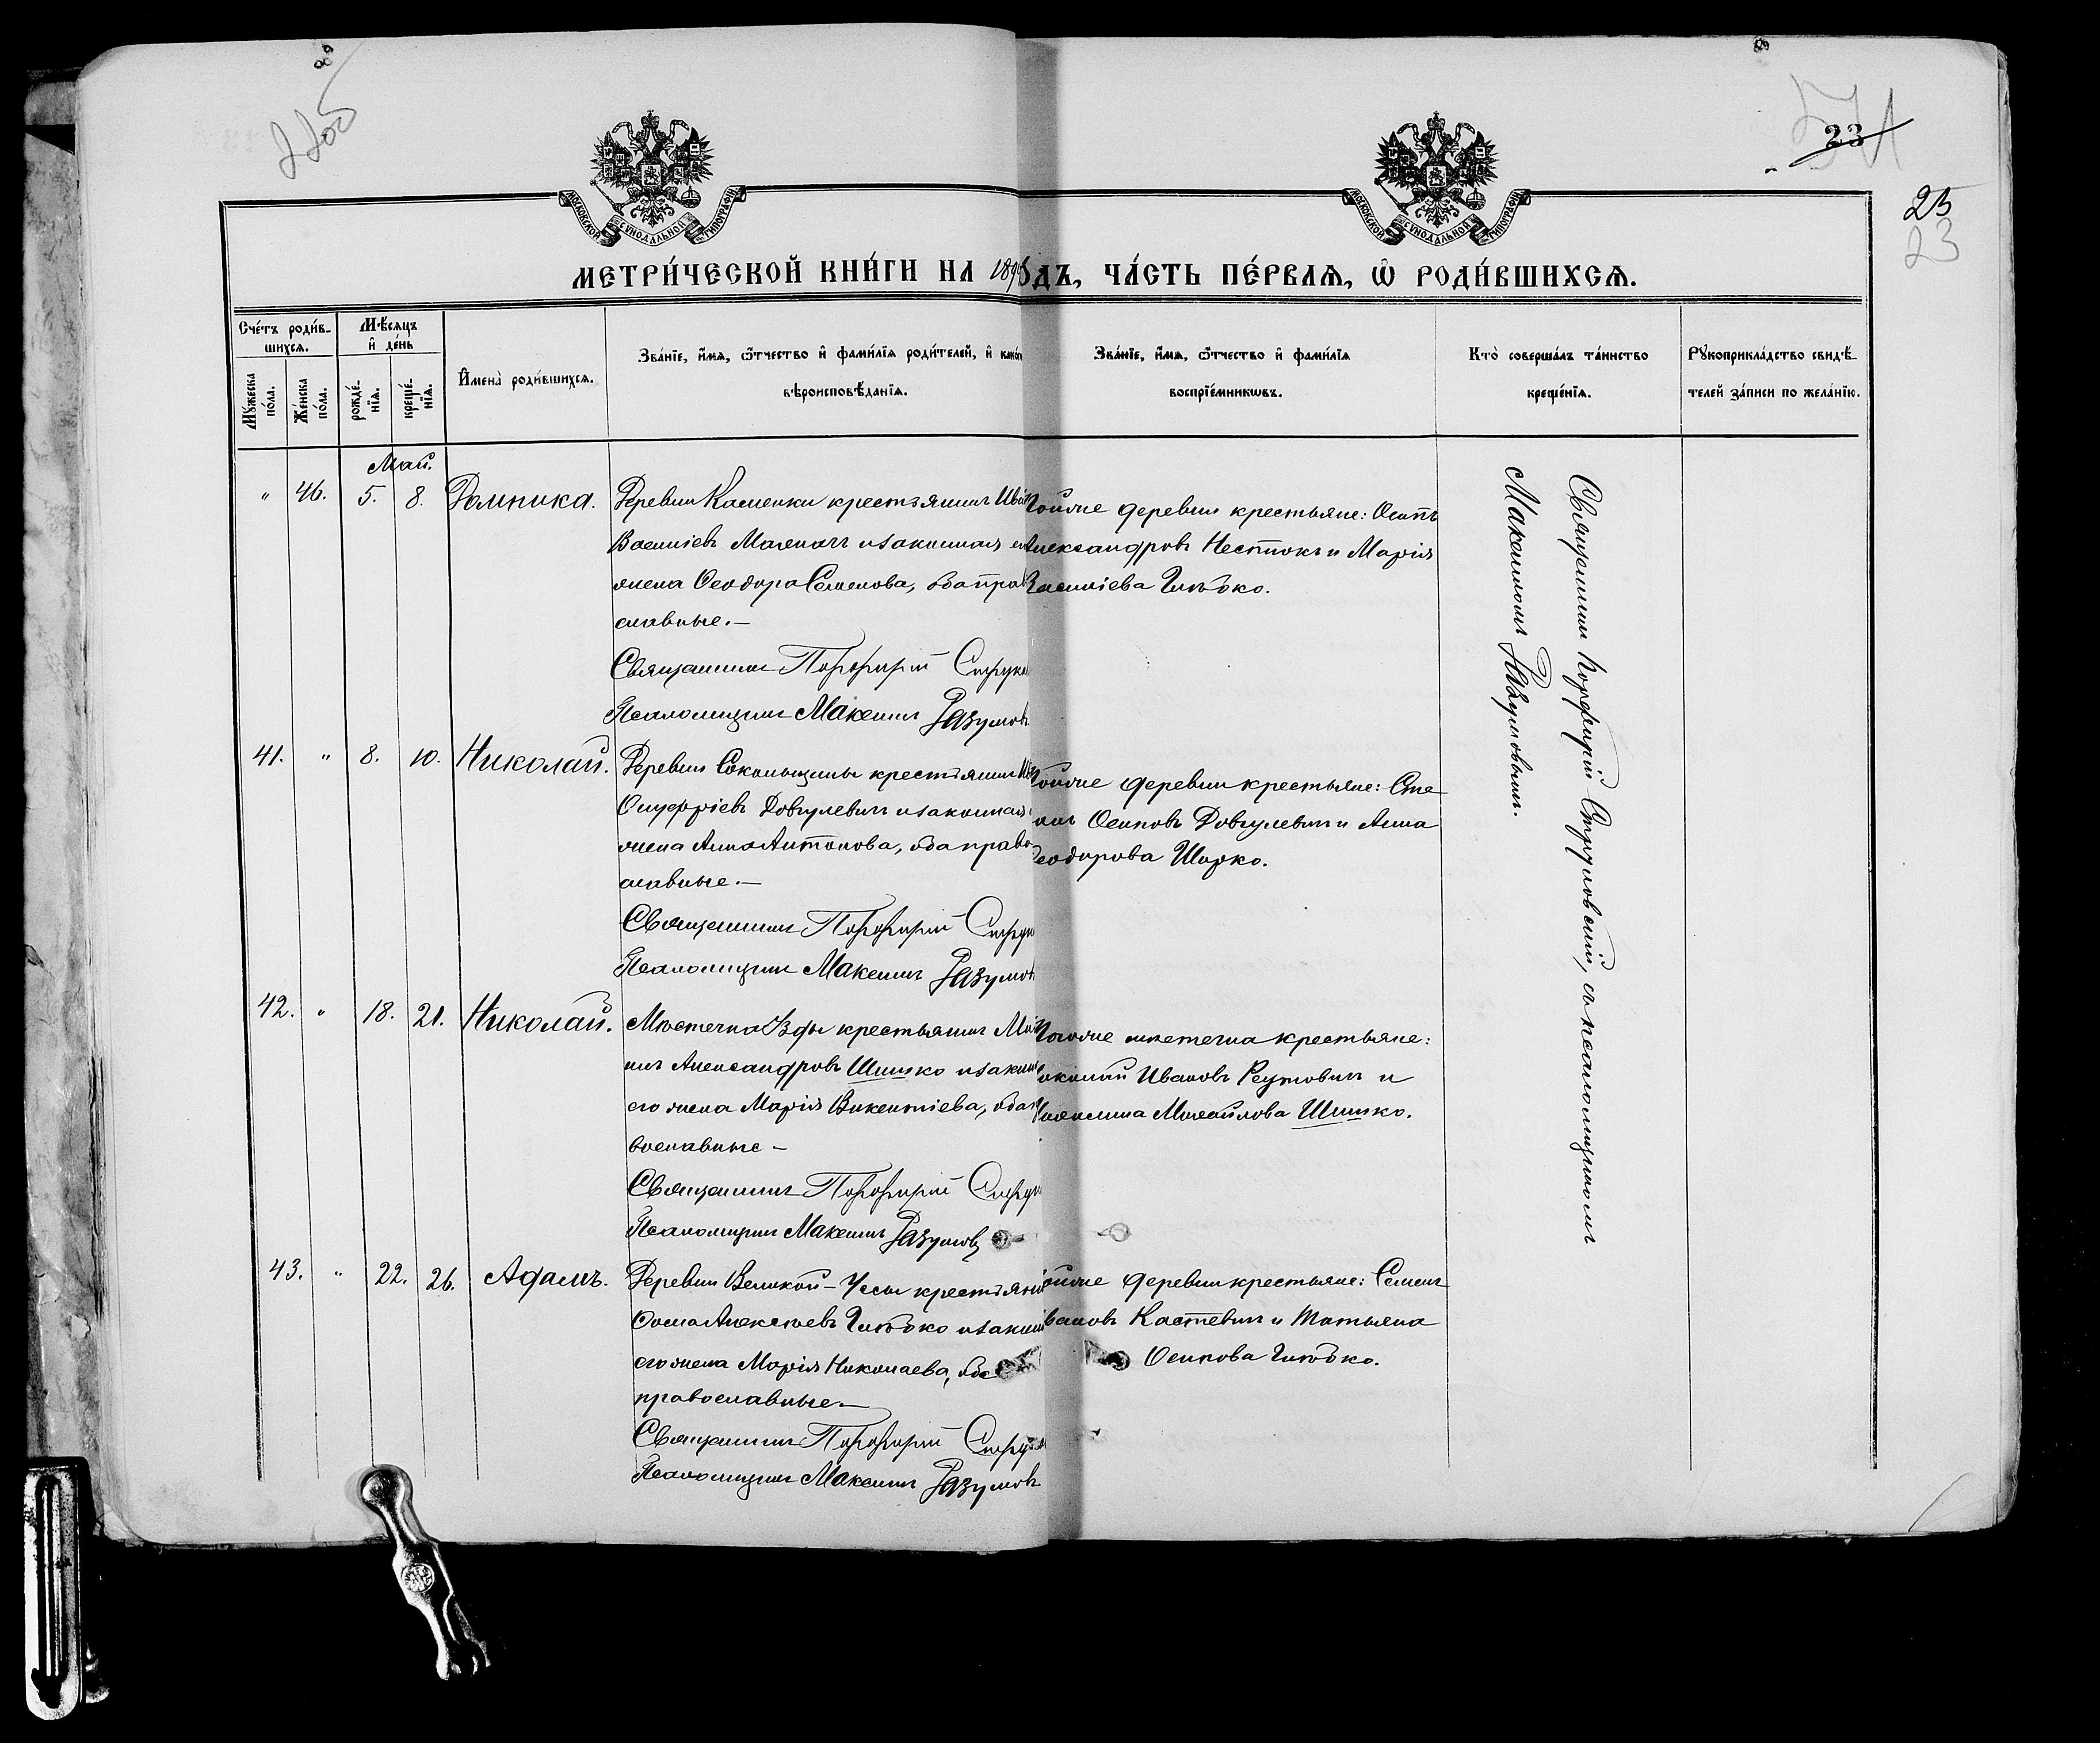 2205
23
25
23
МОСКОВСКОЙ СѴНОДАЛЬНОЙ ТИПОГРАФІИ
МОСКОВСКОЙ СѴНОДАЛЬНОЙ ТИПОГРАФІИ
МЕТРИ́ЧЕСКОЙ КНИ́ГИ НА 189 ДЪ, ЧА́СТЬ ПЕ́РВАѦ, Ѡ҆ РОДИ́ВШИХСѦ.
Сче́тъ роди́в-
шихсѧ.
Мꙋ́жеска по́ла.
Же́нска по́ла.
Мѣ́сѧцъ
и҆ де́нь
рожде́-
нїѧ.
креще́-
нїѧ.
И҆мена̀ роди́вшихсѧ.
Зва́нїе, и҆́мѧ, ѻ҆́тчество и҆ фами́лїѧ роди́телей, и҆ како́гѡ
вѣроисповѣ́данїѧ.
Зва́нїе, и҆́мѧ, ѻ҆́тчество и҆ фами́лїѧ
воспрїе́мникѡвъ.
Кто̀ соверша́лъ та́инство
креще́нїѧ.
Рꙋкоприкла́дство свидѣ́-
телей за́писи по жела́нїю.
Май.
" 46. 5. 8. Домника.
Деревни Каменки крестьянинъ Ива
Василіевъ и законная ег
жена Ѳеодора Семенова, оба прав
славные.—
Священникъ Порфирій Струко
Псаломщикъ Максимъ Разумов
Тойже деревни крестьяне: Осипъ
Александровъ Нестюкъ и Марія
Василіева Глѣбко.
41. " 8. 10. Николай.
Деревни Сокольщины крестьянинъ
Онуфріевъ Довгулевичъ и законная
жена Анна Антонова, оба право
славные.—
Священникъ Порфирій Струк
Псаломщикъ Максимъ Разумов
Тойже деревни крестьяне: Сте
Осиповъ Довгулевичъ и Анна
Ѳеодорова Шорко.
42. " 18. 21. Николай.
Мѣстечка Узды крестьянинъ
Александровъ Шишко и закон
его жена Марія Викентіева, оба п
вославные —
Священникъ Порфирій Струк
Псаломщикъ Максимъ Разумов
Тогоже мѣстечка крестьяне:
Ивановъ Реутовичъ и
Михайлова Шишко.
43. " 22. 26. Адамъ.
Деревни Великой-Усы крестьянин
Ѳома Алексѣевъ Глѣбко и законн
его жена Марія Николаева, оба
православные—
Священникъ Порфирій Стру
Псаломщикъ Максимъ Разумов
Тойже деревни крестьяне: Семенъ
Ивановъ Костевичъ и Татьяна
Осипова Глѣбко.
Священникъ Порфирій Струковскій, съ псаломщикомъ
Максимомъ Разумовымъ.